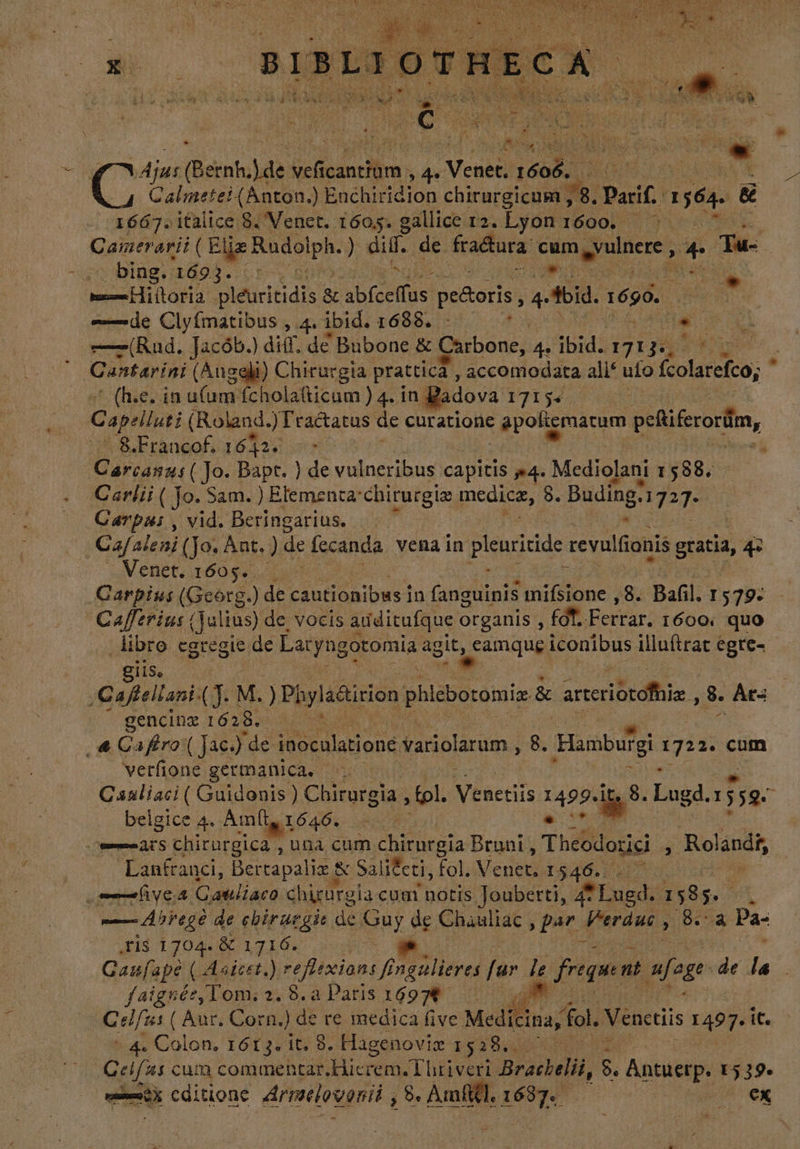 x BIBLIOTHECA
C
CAjus (Bernh.) de veficantium , 4. Venet. 1606.
Calmetei (Anton.) Enchiridion chirurgicum , 8. Parif. 1564. &
1667. italice 8. Venet. 1605. gallice 12. Lyon 1600.
Camerarii ( Eliæ Rudolph. ) diff. de fractura cum vulnere , 4. Tu-
bing. 1693.
——Hiftoria pleuritidis & abfceffus pectoris , 4. ibid. 1690.
——de Clyfmatibus , 4. ibid. 1688.
——(Rud. Jacób.) diff. de Bubone & Carbone, 4. ibid. 1713.
Cantarini (Angeli) Chirurgia prattica , accomodata all' ufo fcolarefco;
(h.e. in ufum fcholafticum ) 4. in Padova 1715.
Capelluti (Roland.) Tractatus de curatione apoftematum peftiferorûm,
8.Francof. 1642.
Carcanus ( Jo. Bapt. ) de vulneribus capitis , 4. Mediolani 1588.
Carlii ( Jo. Sam. ) Elementa chirurgiæ medicæ, 8. Buding. 1727.
Carpus , vid. Beringarius.
Cafaleni (Jo. Ant. ) de fecanda vena in pleuritide revulfionis gratia, 4.
Venet. 1605.
Carpius (Georg.) de cautionibus in fanguinis mifsione , 8. Bafil. 1579.
Cafferius (Julius) de vocis auditufque organis , fol. Ferrar. 1600. quo
libro egregie de Laryngotomia agit, eamque iconibus illuftrat egre-
giis.
Caftellani ( J. M. ) Phylactirion phlebotomiæ & arteriotomiæ , 8. Ar-
gencinæ 1628.
a Caftro ( Jac.) de inoculatione variolarum , 8. Hamburgi 1722. cum
verfione germanica.
Cauliaci ( Guidonis ) Chirurgia , fol. Venetiis 1499. it. 8. Lugd. 1559.
belgice 4. Amft. 1646.
——ars chirurgica , una cum chirurgia Bruni , Theodorici , Rolandi,
Lanfranci, Bertapaliæ & Saliceti, fol. Venet. 1546.
——five a Gauliaco chirurgia cum notis Jouberti, 4. Lugd. 1585.
—— Abregé de chirurgie de Guy de Chauliac , par Verduc , 8. a Pa-
ris 1704. & 1716.
Caufapé ( Anicet.) reflexions fingulieres fur le frequent ufage de la
faignée, Tom. 2. 8. a Paris 1697.
Celfus ( Aur. Corn.) de re medica five Medicina, fol. Venetiis 1497. it.
4. Colon. 1613. it. 8. Hagenoviæ 1528.
Celfus cum commentar. Hierem. Thriveri Brachelii, 8. Antuerp. 1539.
——ex editione Armelovonii , 8. Amftel. 1687.
ex